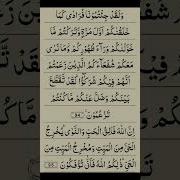 وَلَقَدْ جِئْتُمُونَا فُرَادَىٰ كَمَا
خَلَقْنَاكُمْ أَوَّلَ مَرَّةٍ وَتَرَكْتُمْ مَا
خَوَّلْنَاكُمْ وَرَاءَ ظُهُورِكُمْ وَمَا نَرَىٰ
مَعَكُمْ شُفَعَاءَكُمُ الَّذِينَ زَعَمْتُمْ
أَنَّهُمْ فِيكُمْ شُرَكَاءُ لَقَدْ تَقَطَّعَ
بَيْنَكُمْ وَضَلَّ عَنْكُمْ مَا كُنْتُمْ
تَزْعُمُونَ 94
إِنَّ اللَّهَ فَالِقُ الْحَبِّ وَالنَّوَىٰ يُخْرِجُ
الْحَيَّ مِنَ الْمَيِّتِ وَمُخْرِجُ الْمَيِّتِ مِنَ
الْحَيِّ ذَٰلِكُمُ اللَّهُ فَأَنَّىٰ تُؤْفَكُونَ 95